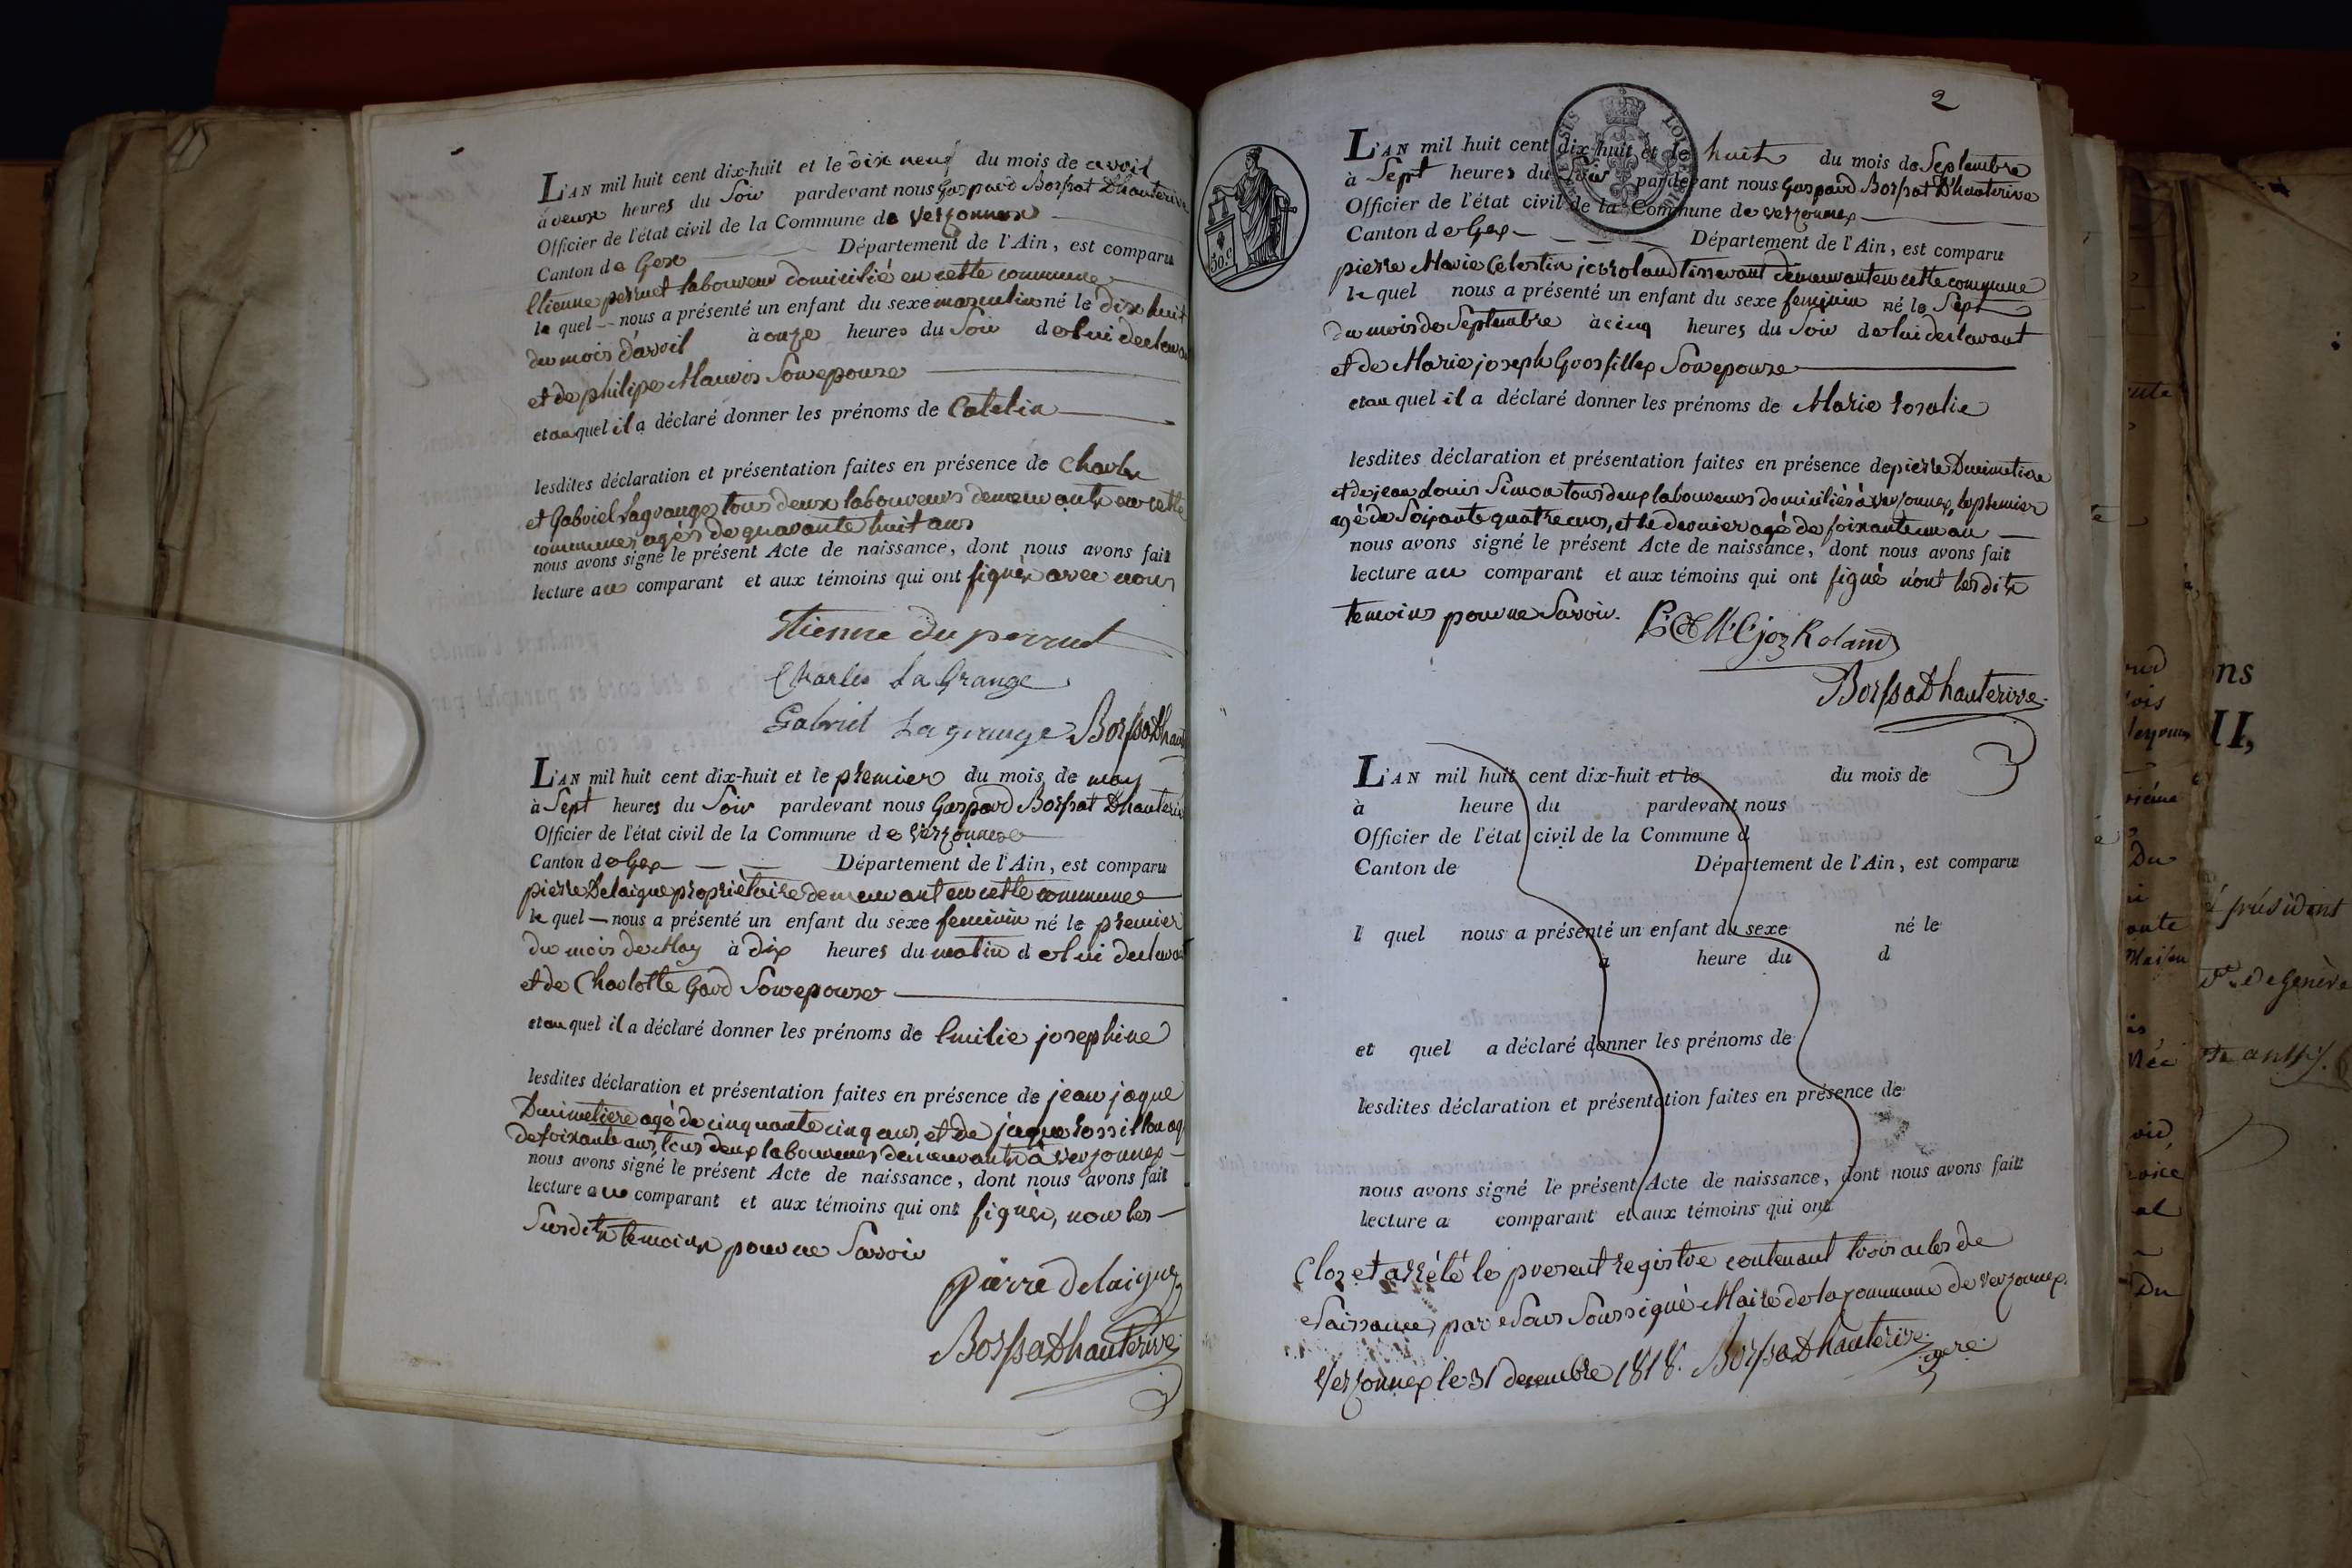 L'AN mil huit cent dix-huit et le dix neuf du mois de avril
à deux heures du Soir pardevant nous Gaspard Borssat Dhauterive
Officier de l'état civil de la Commune de Verzonnex
Canton de Gex Département de l'Ain, est comparu
Etienne perruet laboureur domicilié en cette commune
le quel nous a présenté un enfant du sexe masculin né le dix huit
du mois d'avril à onze heures du Soir de lui declarant
et de philipe Mauris Son epouse
et au quel il a déclaré donner les prénoms de
lesdites déclaration et présentation faites en présence de Charle
et Gabriel Lagrange tous deux laboureurs demeurants en cette
commune, agés de quarante huit ans
nous avons signé le présent Acte de naissance, dont nous avons fait
lecture au comparant et aux témoins qui ont signés avec nous
Etienne du perruet
Charles La Grange
Gabriel Lagrange Borssat Dhaut
L'AN mil huit cent dix-huit et le premier du mois de may
à Sept heures du Soir pardevant nous Gaspard Borssat Dhauterive
Officier de l'état civil de la Commune de Verzonnex
Canton de Gex Département de l'Ain, est comparu
pierre Delaigue proprietaire demeurant en cette commune
le quel nous a présenté un enfant du sexe feminin né le premier
du mois de May à dix heures du matin de lui declarant
et de Charlotte Gard Son epouse
et au quel il a déclaré donner les prénoms de Emilie josephine
lesdites déclaration et présentation faites en présence de jean jaque
Durimetiere agé de cinquante cinq ans, et de jaque Rossillon ag
de soixante ans, tous deux laboureurs demeurants à verzonnex
nous avons signé le présent Acte de naissance, dont nous avons fait
lecture au comparant et aux témoins qui ont signés, non les
Susdits temoins pour ne Savoir
pierre Delaigue
Borssat Dhauterive
2
L'AN mil huit cent dix-huit et le huit du mois de Septembre
à Sept heures du Soir pardevant nous Gaspard Borssat D'hauterive
Officier de l'état civil de la Commune de verzonnex
Canton de Gex Département de l'Ain, est comparu
pierre Marie Celestin jozroland tisserant demeurant en cette commune
le quel nous a présenté un enfant du sexe feminin né le Sept
du mois de Septembre à cinq heures du Soir de lui declarant
et de Marie joseph Grosfillex Son epouse
et au quel il a déclaré donner les prénoms de Marie rosalie
lesdites déclaration et présentation faites en présence de pierre Durimetiere
et de jean Louis Simon tous deux laboureurs domiciliés à verzonnex, le premier
agé de Soixante quatre ans, et le dernier agé de soixante un an
nous avons signé le présent Acte de naissance, dont nous avons fait
lecture au comparant et aux témoins qui ont signé n'ont lesdits
temoins pour ne Savoir. joz Roland
Borssat Dhauterive
50. c
L'AN mil huit cent dix-huit et le du mois de
à heure du pardevant nous
Officier de l'état civil de la Commune d
Canton de Département de l'Ain, est comparu
l quel nous a présenté un enfant du sexe né le
à heure du d
et quel a déclaré donner les prénoms de
lesdites déclaration et présentation faites en présence de
nous avons signé le présent Acte de naissance, dont nous avons fait
lecture a comparant et aux témoins qui ont
Clos et arrété le present registre contenant trois actes de
Naissance, par Nous Soussigné Maire de la commune de verzonnex.
Verzonnex le 31 decembre 1818. Borssat Dhauterive
ns
II,
président
de Genève